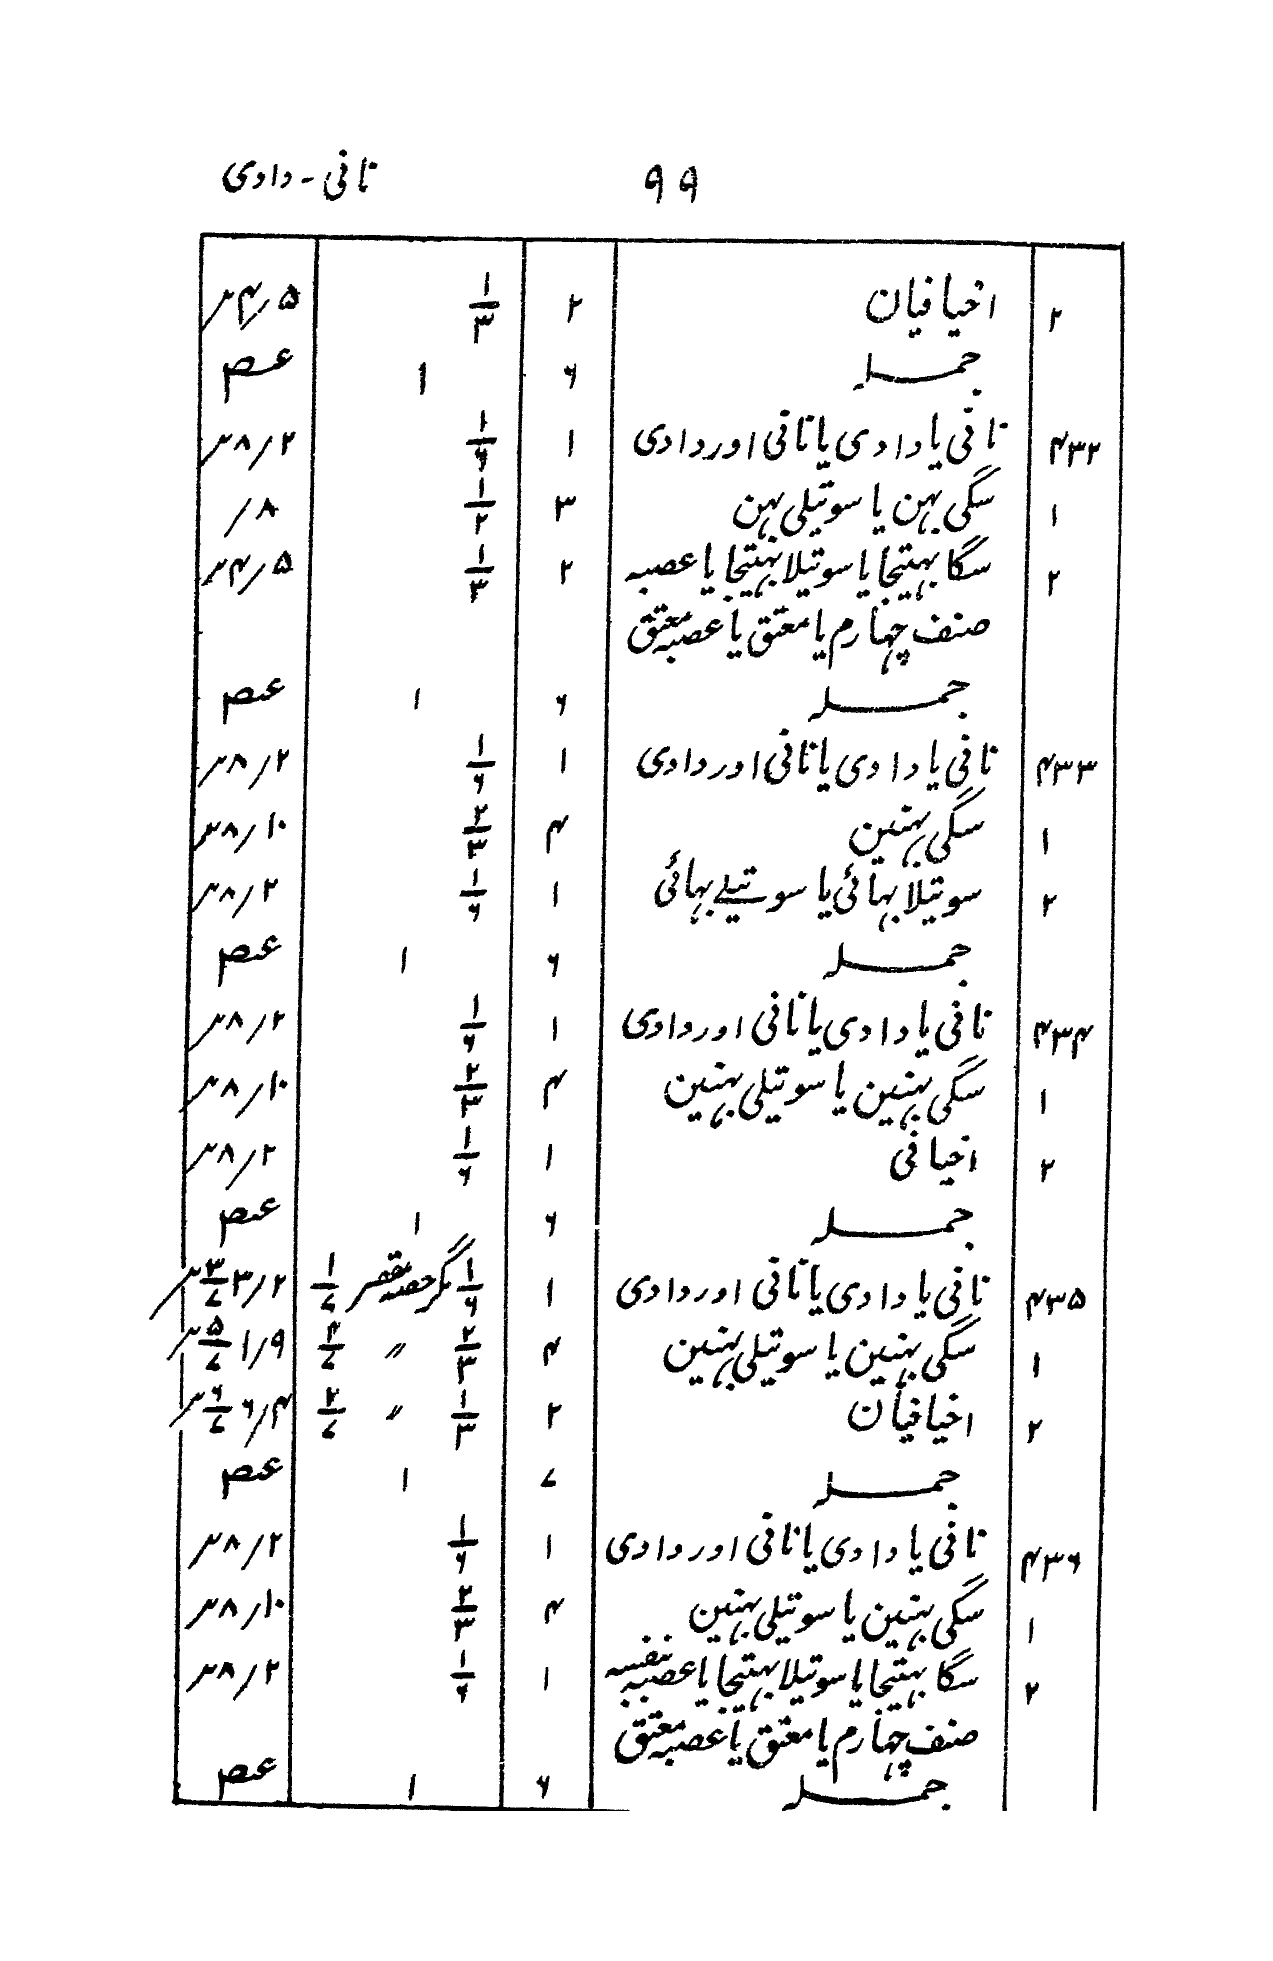 ۹۹ نانی - دادی
۲ اخیافیان ۲ ۱/۳ ۵/۴
جملہ ۶ ۱ عصہ
۴۳۲ نانی یا دادی یا نانی اور دادی ۱ ۱/۶ ۲/۸
۱ سگی بہن یا سوتیلی بہن ۳ ۱/۲ ۸/
۲ سگا بہتیجا یا سوتیلا بہتیجا یا عصبہ ۲ ۱/۳ ۵/۴
صنف چہارم یا معتق یا عصبہ معتق
جملہ ۶ ۱ عصہ
۴۳۳ نانی یا دادی یا نانی اور دادی ۱ ۱/۶ ۲/۸
۱ سگی بہنین ۴ ۲/۳ ۱۰/۸
۲ سوتیلا بہائی یا سوتیلے بہائی ۱ ۱/۶ ۲/۸
جملہ ۶ ۱ عصہ
۴۳۴ نانی یا دادی یا نانی اور دادی ۱ ۱/۶ ۲/۸
۱ سگی بہنین یا سوتیلی بہنین ۴ ۲/۳ ۱۰/۸
۲ اخیافی ۱ ۱/۶ ۲/۸
جملہ ۶ ۱ عصہ
۴۳۵ نانی یا دادی یا نانی اور دادی ۱ ۱/۶ مگر حصہ ۱/۷ ۲/۳ ۳/۷
۱ سگی بہنین یا سوتیلی بہنین ۴ ۲/۳ 〃 ۴/۷ ۹/۱ ۵/۷
۲ اخیافیان ۲ ۱/۳ 〃 ۲/۷ ۴/۶ ۶/۷
جملہ ۷ ۱ عصہ
۴۳۶ نانی یا دادی یا نانی اور دادی ۱ ۱/۶ ۲/۸
۱ سگی بہنین یا سوتیلی بہنین ۴ ۲/۳ ۱۰/۸
۲ سگا بہتیجا یا سوتیلا بہتیجا یا عصبہ بنفسہ ۱ ۱/۶ ۲/۸
صنف چہارم یا معتق یا عصبہ معتق
جملہ ۶ ۱ عصہ